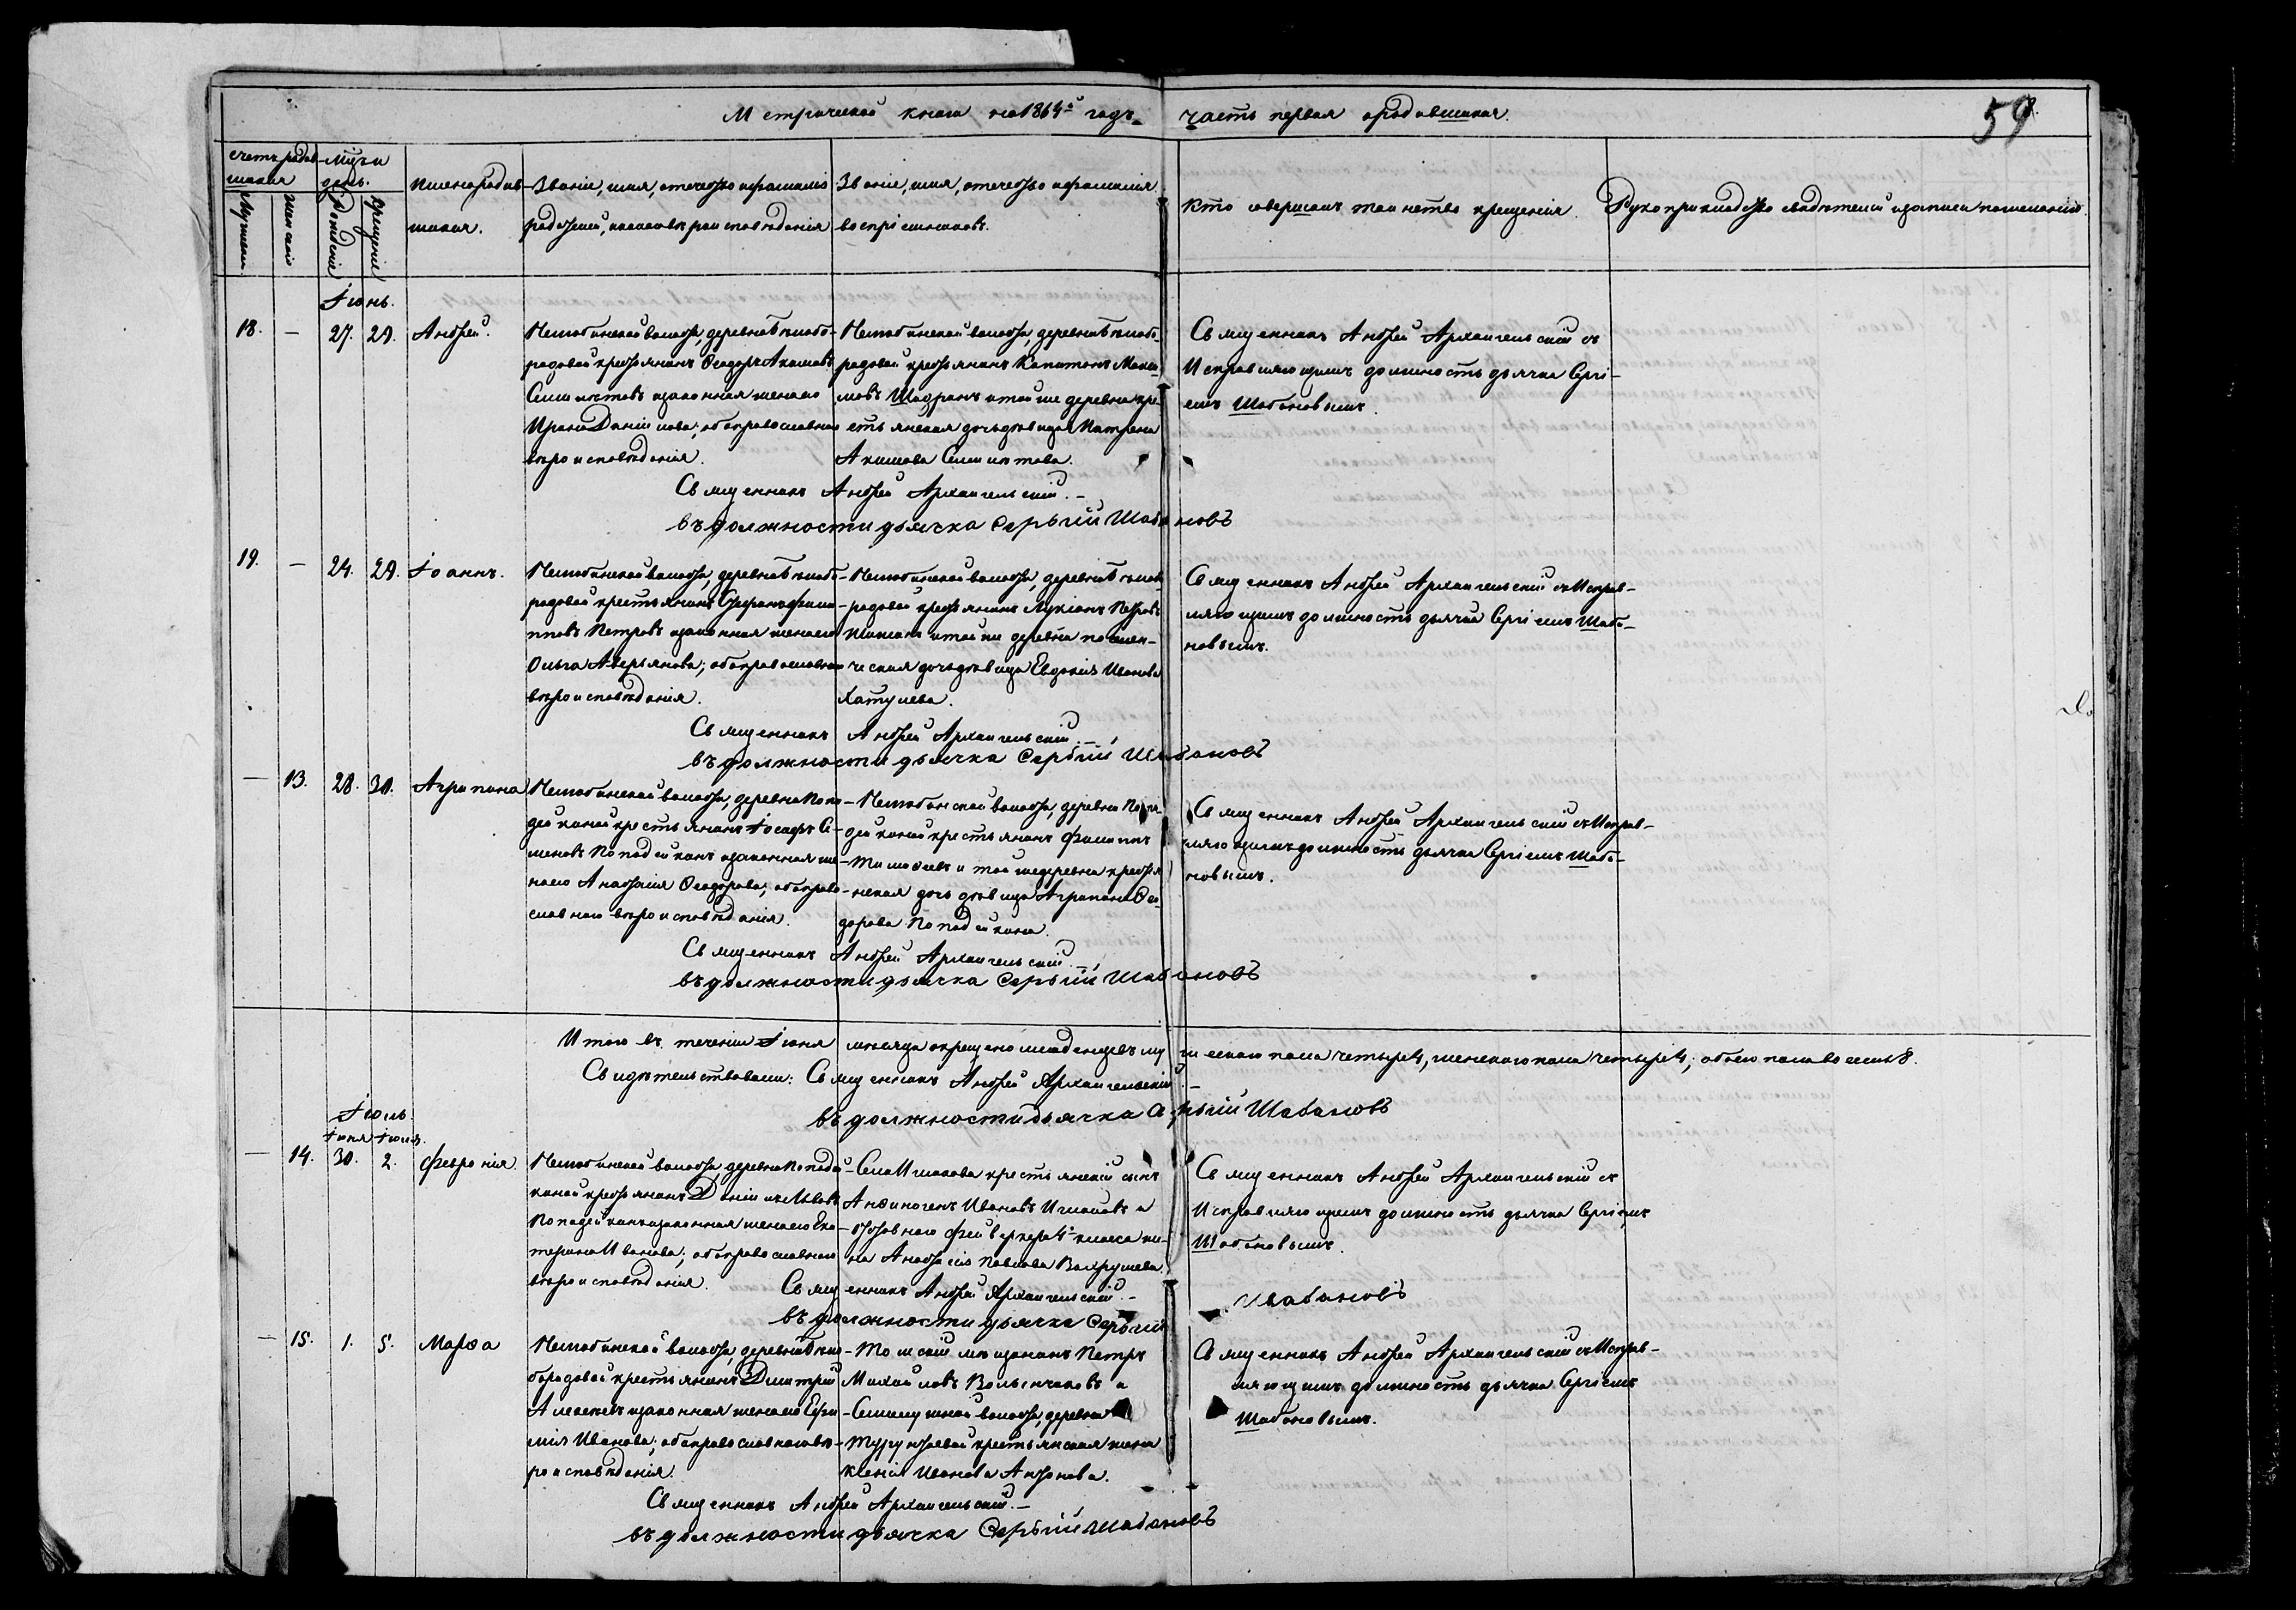 Метрической книги на 1864й годъ часть первая о родившихся. 59
Счетъ родив- Мѣсяцъ и
шихся день.
Мужескаго Женскаго Рожденіе Крещеніе
Имена родив-
шихся.
Званіе, имя, отечество и фамилія
родителей, и какого вѣроисповѣданія
Званіе, имя, отечество и фамилія
воспріемниковъ.
Кто совершалъ таинство крещенія.
Рукоприкладство свидѣтелей записи по желанію.
Іюнь.
18. — 27. 29. Андрей.
волости, деревни Бѣлобо-
родовой крестьянинъ Ѳеодоръ Акимовъ
и законная жена его
Ирина Даніилова; оба православнаго
вѣроисповѣданія.
волости, деревни Бѣлобо-
родовой крестьянинъ Капитонъ Макси-
мовъ и той же деревни кре-
стьянская дочь дѣвица Матрена
Акимова
Священникъ Андрей Архангельскій съ
Исправляющимъ должность дьячка Сергі-
емъ Шабановымъ.
Священникъ Андрей Архангельскій.—
въ должности дьячка Сергій Шабановъ
19. — 24. 29. Іоаннъ.
волости, деревни Бѣлобо-
родовой крестьянинъ Стефанъ Филип-
повъ Петровъ и законная жена его
Ольга Аверьянова; оба православнаго
вѣроисповѣданія.
волости, деревни Бѣлобо-
родовой крестьянинъ Лукіанъ Петровъ
и той же деревни
дочь дѣвица Евдокія Иванова
Священникъ Андрей Архангельскій съ Исправ-
ляющимъ должность дьячка Сергіемъ Шаба-
новымъ.
Священникъ Андрей Архангельскій.—
въ должности дьячка Сергій Шабановъ
— 13. 28. 30. Агрипина
волости, деревни Попа-
дейкиной крестьянинъ Іосифъ Се-
меновъ Попадейкинъ и законная же-
на его Анастасія Ѳеодорова; оба право-
славнаго вѣроисповѣданія.
волости, деревни Попа-
дейкиной крестьянинъ Филиппъ
Тимоѳеевъ и той же деревни крестья-
нская дочь дѣвица Агрипина Ѳео-
дорова Попадейкина.
Священникъ Андрей Архангельскій съ Исправ-
ляющимъ должность дьячка Сергіемъ Шаба-
новымъ.
Священникъ Андрей Архангельскій.—
въ должности дьячка Сергій Шабановъ
Итого въ теченіи Іюня мѣсяца окрещено младенцевъ мужескаго пола четыре 4, женскаго пола четыре 4; обоего пола восемь 8.
Свидѣтельствовали: Священникъ Андрей Архангельскій.—
въ должности дьячка Сергій Шабановъ
Іюль.
Іюня Іюля.
— 14. 30. 2. Февронія.
волости, деревни Попадей-
киной крестьянинъ Даніилъ Львовъ
Попадейкинъ и законная жена его Ека-
терина Иванова; оба православнаго
вѣроисповѣданія.
Села крестьянскій сынъ
Анѳиногенъ Ивановъ и
4го класса же-
на Анастасія Павлова Вахрушева.
Священникъ Андрей Архангельскій съ
Исправляющимъ должность дьячка Сергіемъ
Шабановымъ.
Священникъ Андрей Архангельскій.—
въ должности дьячка Сергій Шабановъ
— 15. 1. 5. Марѳа
волости, деревни Бѣло-
бородовой крестьянинъ Димитрій
Алексѣевъ и законная жена его Евфи-
мія Иванова; оба православнаго вѣ-
роисповѣданія.
Томскій мѣщанинъ Петръ
Михайловъ и
волости, деревни
крестьянская жена
Ксенія Иванова Антонова.
Священникъ Андрей Архангельскій съ Исправ-
ляющимъ должность дьячка Сергіемъ
Шабановымъ.
Священникъ Андрей Архангельскій.—
въ должности дьячка Сергій Шабановъ